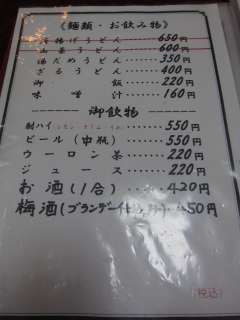 《麺類・お飲み物》
揚げうどん‥‥‥650円
山菜うどん‥‥‥600円
湯だめうどん‥‥350円
ざるうどん‥‥‥400円
御飯‥‥‥220円
味噌汁‥‥‥160円
御飲物
酎ハイ‥‥‥550円
ビール(中瓶)‥‥‥550円
ウーロン茶‥‥‥220円
ジュース‥‥‥220円
お酒(1合)‥‥‥420円
梅酒(ブランデー 450円
税込